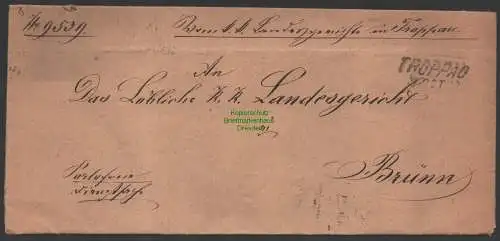 No 9539.
Vom k. k. Landesgerichte in Troppau
TROPPAU
An
Das Löbliche K. K. Landesgericht
Kopierschutz
Briefmarkenhaus
Dresden
Portofreie
Dienstsache
Brünn